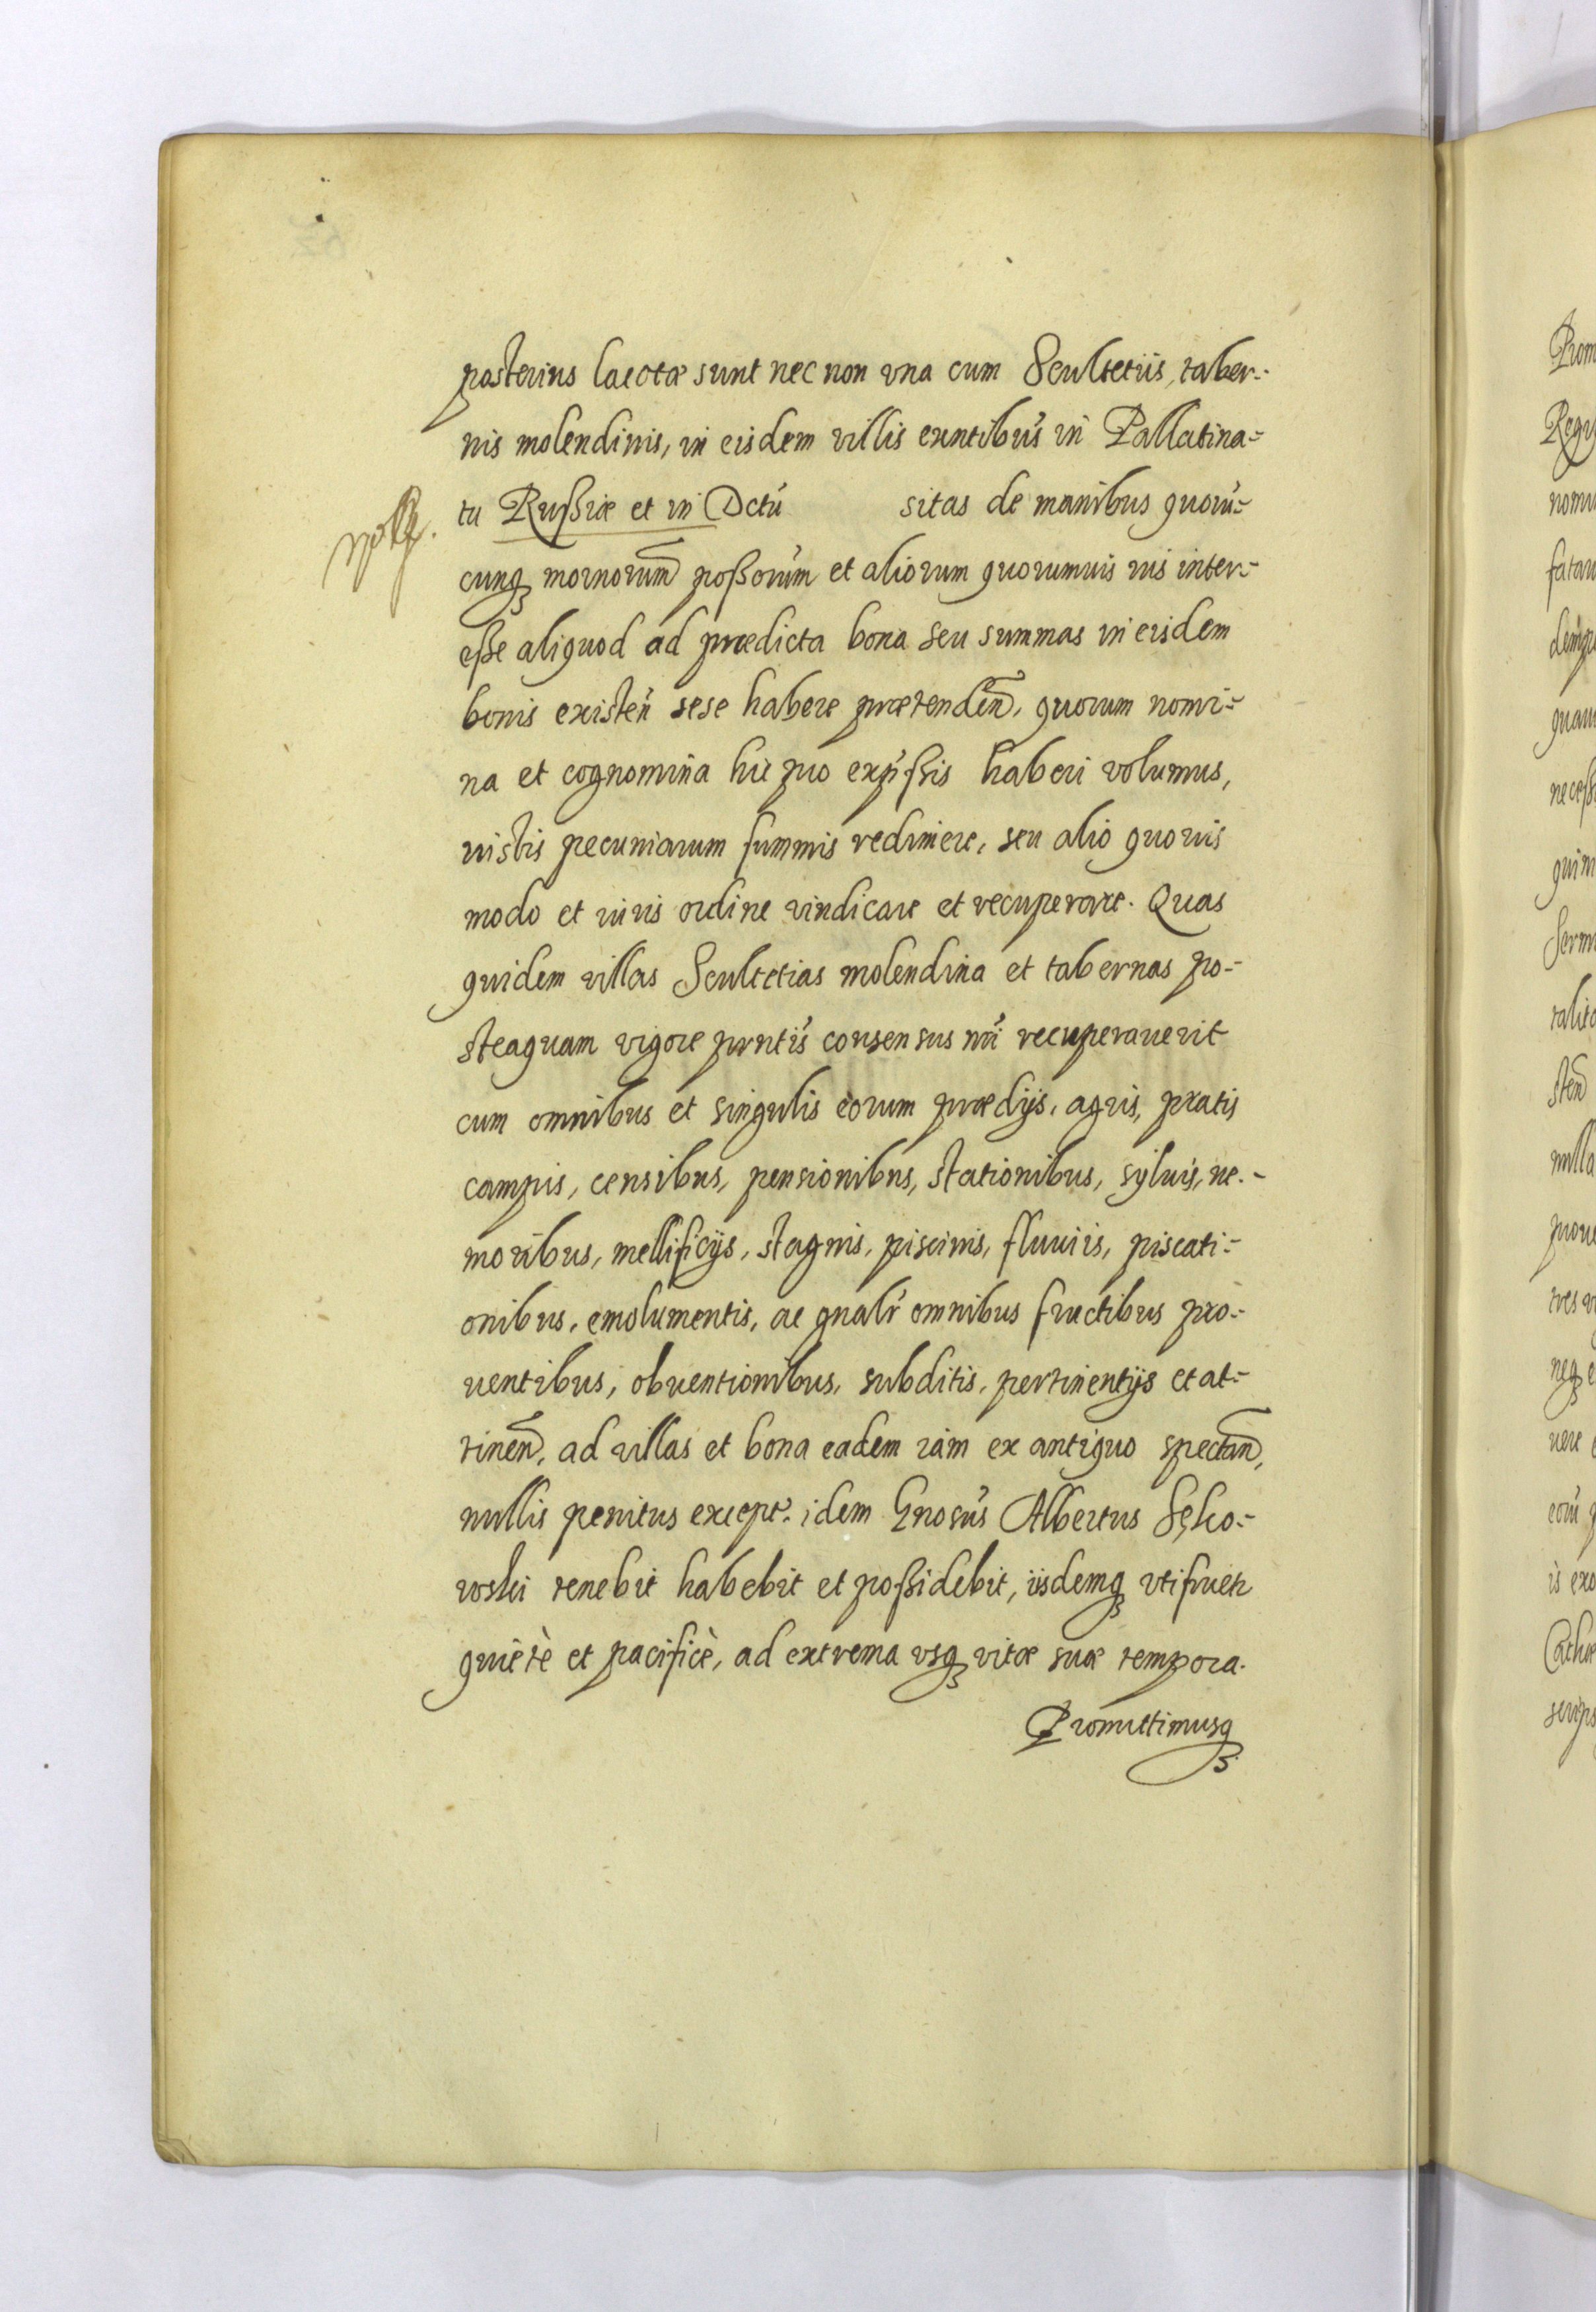 posterius locatæ sunt nec non vna cum Scultetiis, taber-
nis molendinis, in eisdem villis exntibus in Pallatina-
tu Russiæ et in Dctu sitas de manibus quoru-
cunq mornorum possorum et aliorum quorumuis ius inter-
esse aliquod ad prædicta bona seu summas in eisdem
bonis existen sese habere prætenden, quorum nomi-
na et cognomina hic pro expssis haberi volumus,
iustis pecuniarum summis redimere, seu alio quouis
modo et iuris ordine vindicare et recuperare. Quas
quidem villas Scultetias molendina et tabernas po-
steaquam vigore prntis consensus nri recuperauerit
cum omnibus et singulis eorum prædijs, agris, pratis
campis, censibus, pensionibus, stationibus, syluis, ne-
moribus, mellificijs, stagnis, piscinis, fluuiis, piscati-
onibus, emolumentis, ac gnalr omnibus fructibus pro-
uentibus, obuentionibus, subditis, pertinentijs et at-
tinen, ad villas et bona eadem iam ex antiquo spectan,
nullis penitus except. idem Gnosus Albertus Sęko-
wski tenebit habebit et possidebit, iisdemq vtifruetr
quietè et pacificè, ad extrema vsq vitæ suæ tempora.
Promittimusq